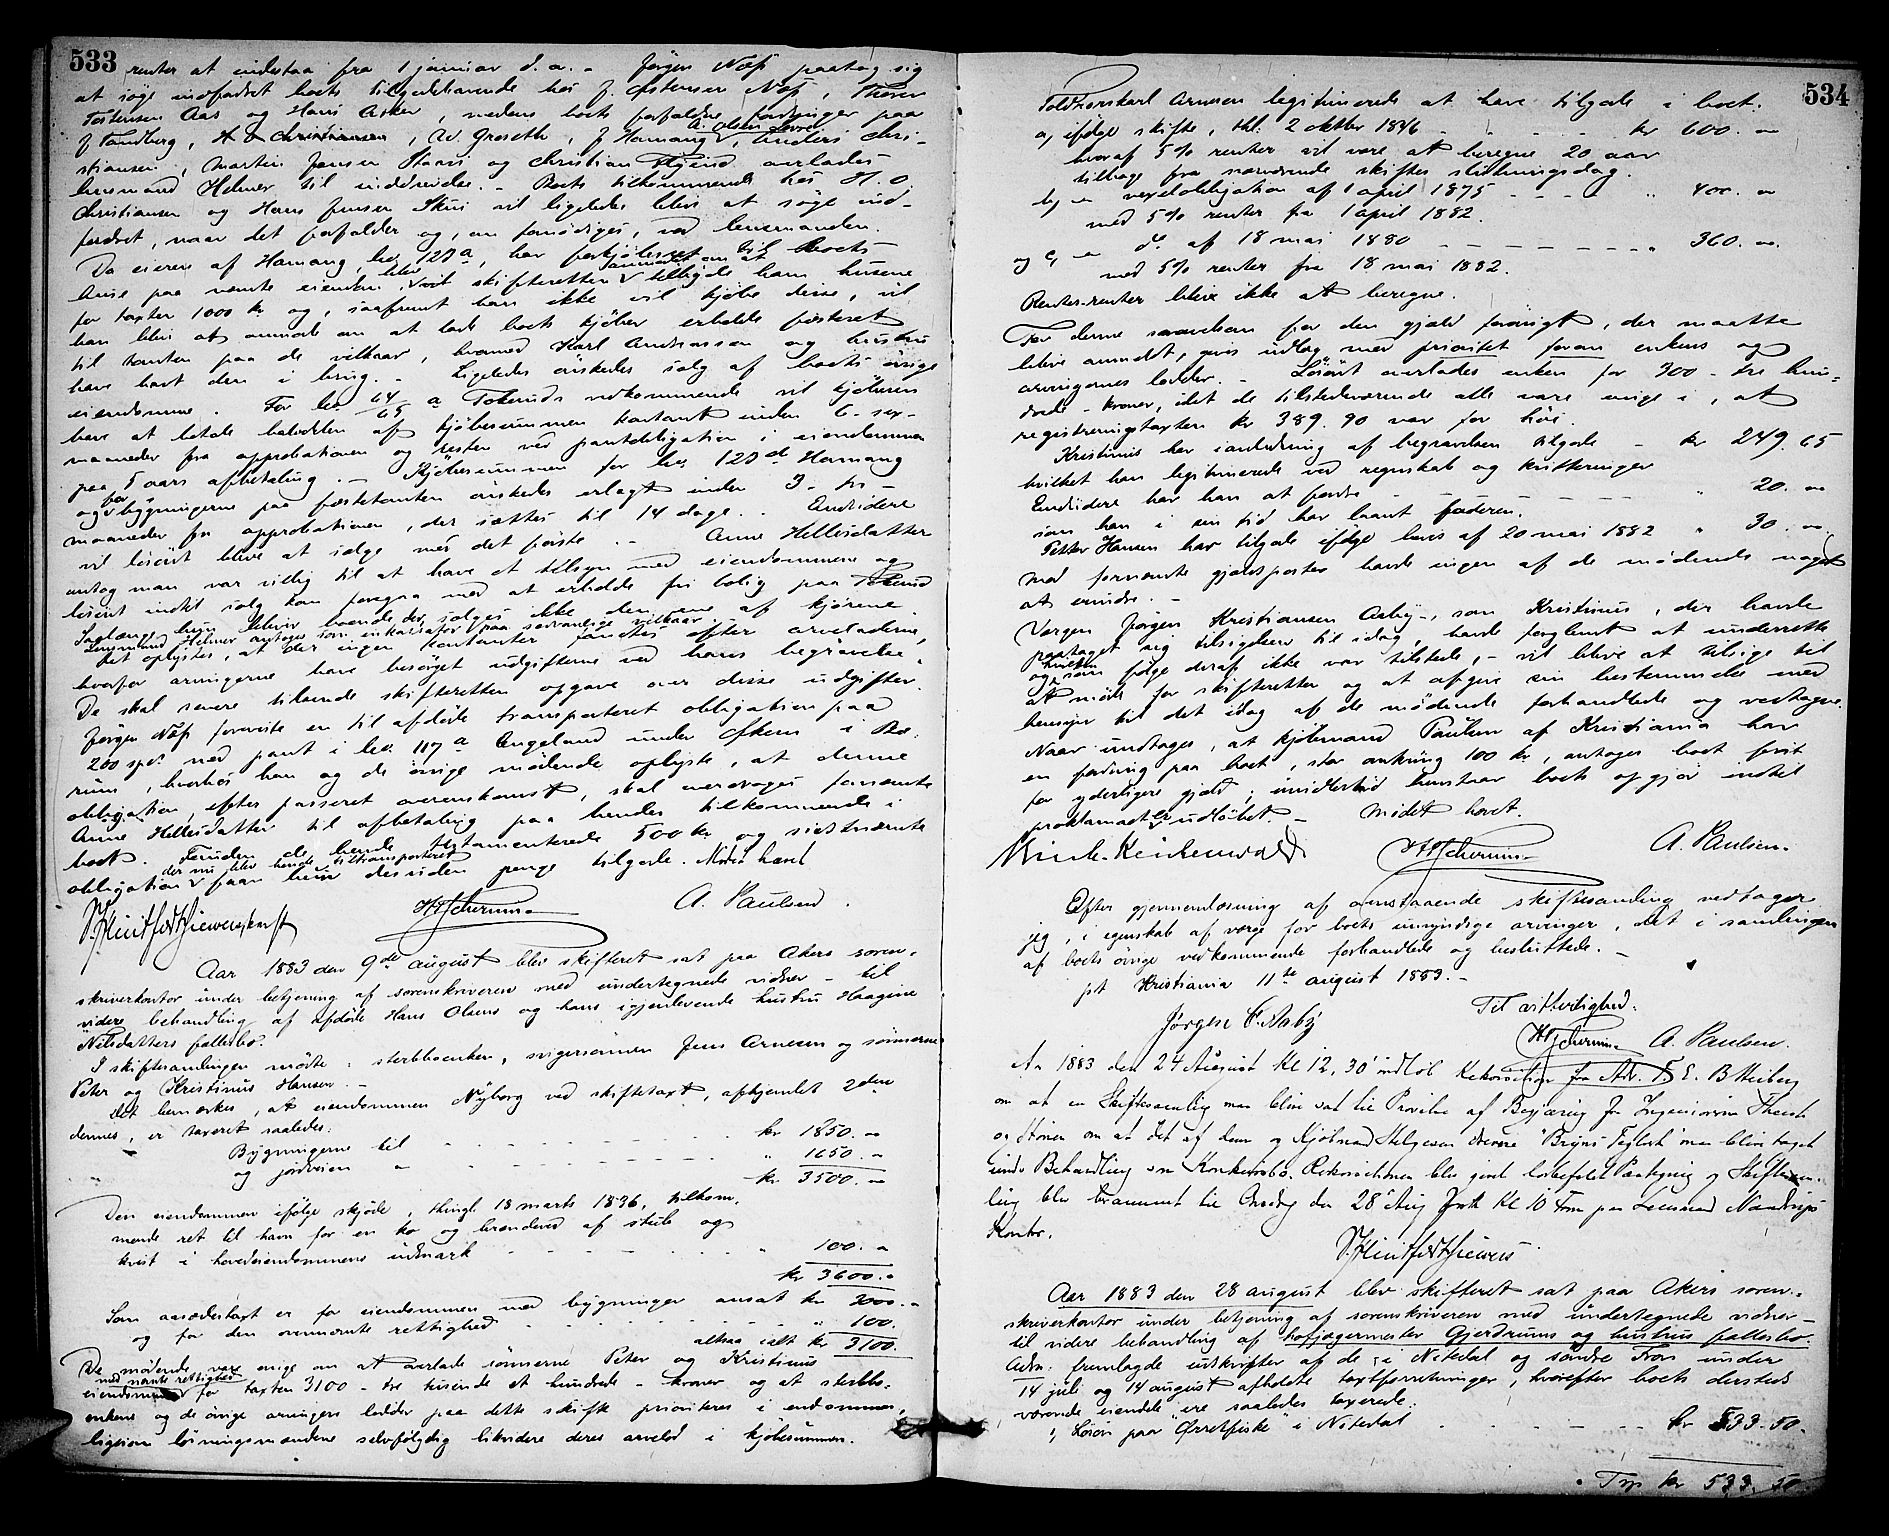 533
renter at indestaa fra 1 januar d. a. - Jørgen Næs paatog sig
at søge indfordret boets tilgodehavende hos J. Østensen Næs, Thorer
Torstensen Aas og Hans Asker, medens boets forfaldne fordringer paa
J. Tandberg, H O Christiansen, Av. Groseth, J Hamang, A. Olsen Anders Chri-
stiansen, Martin Jensen Haavi og Christian overlades
lensmand Helmer til inddrivelse. - Boets tilkommende hos H. O.
Christiansen og Hans Jensen Skui vil ligeledes blive at søge ind-
fordret, naar det forfalder og, om fornødiges, ved lensmanden.
Da eieren af Hamang, lno 127 a, har forkjøbsret til boets
huse paa nævnte eiendom, vil skifteretten tilbyde ham husene
for taxten 1000 kr og, saafremt han ikke vil kjøbe disse, vil
han blive at anmode om at lade boets kjøber erholde fæsteret
til tomten paa de vilkaar, hvormed Karl Andreassen og hustru
have havt den i brug. - Ligeledes ønskedes salg af boets øvrige
eiendomme. For lno 64/65 a Tokeruds vedkommende vil kjøberen
have at betale halvdelen af kjøbesummen kontant inden 6 - sex -
maaneder fra approbationen og resten ved pantobligation i eiendommen
paa 5 aars afbetaling. - Kjøbesummen for lno 127 d Hamang
og for bygningerne paa fæstetomten ønskedes erlagt inden 3 - tre -
maaneder fra approbationen, der sættes til 14 dage. - Endvidere
vil løsøret blive at sælge med det første. - Anne Hellesdatter
antog man var villig til at have et tilsyn med eiendommene og
løsøret indtil salg kan foregaa med at erholde fri bolig paa Tokerud
Saalænge hun bliver boende der, sælges ikke den ene af kjørene.
Lensmand Helmer antoges som inkassator paa sædvanlige vilkaar.
Det oplystes, at der ingen kontanter fandtes efter arveladeren,
hvorfor arvingerne have besørget udgifterne ved hans begravelse.
De skal senere tilsende skifteretten opgave over disse udgifter.
Jørgen Næs foreviste en til afdøde transporteret obligation paa
200 spd. med pant i lno 117 a Angeland under Økern i Bæ-
rum, hvorhos han og de øvrige mødende oplyste, at denne
obligation, efter passeret overenskomst, skal overdrages fornævnte
Anne Hellesdatter til afbetaling paa hendes tilkommende i
boet. Foruden de hende testamenterede 500 kr og sidstnævnte
obligation der nu blev hende tiltransporteret faar hun desuden penge tilgode. Mødet hævet
A. Paulsen.
Aar 1883 den 9de august blev skifteret sat paa Akers soren-
skriverkontor under betjening af sorenskriveren med undertegnede vidner - til
videre behandling af afdøde Hans Olsens og hans igjenlevende hustru Haagine
Nilsdatters fællesbo.
I skiftesamlingen mødte: sterbboenken, svigersønnen Jens Arnesen og sønnerne
Peter og Kristinus Hansen. -
Det bemærkes, at eiendommen Nyborg ved skiftetaxt, afhjemlet 2den
dennes, er taxeret saaledes:
Bygningerne til - - - - - - kr 1850. -
og jordveien - - - - - - - - " 1650. -
kr 3500. -
Den eiendommen ifølge skjøde, thingl. 18 marts 1836, tilkom-
mende ret til havn for en ko og brændeved af stub og
kvist i hovedeiendommens udmark - - - - " 100. -
kr 3600. -
Som aasædestaxt er for eiendommen med bygninger ansat kr 3000. -
og for den ovennævnte rettighed - - - - - - " 100. -
altsaa ialt kr 3100.
De mødende vare enige om at overlade sønnerne Peter og Kristinus
eiendommen med nævnte rettighed for taxten 3100 - tre tusinde et hundrede - kroner og at sterbbo-
enkens og de øvrige arvingers lodder paa dette skifte prioriteres i eiendommen,
ligesom løsningsmændene selvfølgelig likvidere deres arvelod i kjøbesummen.
534
Arnesen legitimerede at have tilgode i boet:
a, ifølge skifte, thl. 2 oktbr 1846 - - - - kr 600. -
hvoraf 5 % renter vil være at beregne 20 aar
tilbage fra nærværende skiftes slutningsdag.
b, - vexelobligation af 1 april 1875 - - - - " 400. -
med 5% renter fra 1 april 1882.
og c, - do af 18 mai 1880 - - - - - - - " 360. -
med 5% renter fra 18 mai 1882.
Renters-renter blive ikke at beregne.
For denne saavelsom for den gjæld forøvrigt, der maatte
blive anmeldt, gives udlæg med prioritet foran enkens og
arvingernes lodder. - Løsøret overlades enken for 300 - tre hun-
drede - kroner, idet de tilstedeværende alle vare enige i, at
registreringstaxten kr 389. 90 var for høi.
Kristinus har i anledning af begravelsen tilgode - kr 249. 65
hvilket han legitimerede ved regnskab og kvitteringer
Endvidere har han at fordre - - - - - - " 20. -
som han i sin tid har laant faderen.
Petter Hansen har tilgode ifølge bevis af 20 mai 1882 " 30. -
Mod fornævnte gjældsposter havde ingen af de mødende noget
at erindre. -
Værgen Jørgen Kristiansen Aaby, som Kristinus, der havde
paataget sig tilsigelsen til idag, havde forglemt at underrette
og hvilken som følge deraf ikke var tilstede, - vil blive at tilsige til
at møde for skifteretten og at afgive sin bestemmelse med
hensyn til det idag af de mødende forhandlede og vedtagne.
Naar undtages, at kjøbmand Paulsen af Kristiania har
en fordring paa boet, stor omkring 100 kr, antages boet frit
for yderligere gjæld; imidlertid henstaar boets opgjør indtil
proklamaet er udløbet. - Mødet hævet.
A. Paulsen.
Efter gjennemlæsning af omstaaende skiftesamling vedtager
jeg, i egenskab af værge for boets umyndige arvinger, det i samlingen
af boets øvrige vedkommende forhandlede og besluttede. -
pt Kristiania 11te august 1883. -
Til vitterlighed:
Jørgen C. Aaby
A. Paulsen.
Ar 1883 den 24 August Kl 12,30 indløb Rekvisition fra Adv. F. E. B
om at en Skiftesamling maa blive sat til Prøvelse af Begjæring fra Ingeniørerne
om at det af dem og Kjøbmand Helgesen drevne "Bryns Teglv" maa blive taget
under Behandling som Konkursbo. Rekvisitionen blev givet Paategning og Skiftesam-
ling blev berammet til Onsdag den 28 Aug Kl 10 Form paa Lensmand
Kontor.
Aar 1883 den 28 august blev skifteret sat paa Akers soren-
skriverkontor under betjening af sorenskriveren med undertegnede vidner -
til videre behandling af hofjægermester Gjerdrums og hustrus fællesbo.
Adm. fremlagde udskrifter af de i Nitedal og søndre Fron under
14 juli og 14 august afholdte taxtforretninger, hvorefter boets dersteds
værende eiendele ere saaledes taxerede:
1, Løsøre paa "Ørretfiske" i Nitedal - - - - kr 533. 50.
Trsp kr 533. 50